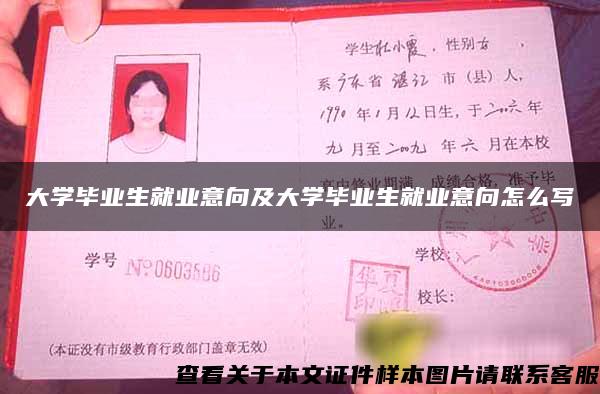 学生杜小霞，性别女，
系广东省湛江市（县）人，
1990年1月12日生，于二〇〇六年
九月至二〇〇九年六月在本校
高中修业期满，成绩合格，准予毕
业。
大学毕业生就业意向及大学毕业生就业意向怎么写
学号 №0603586
学校：
校长：
(本证没有市级教育行政部门盖章无效)
查看关于本文证件样本图片请联系客服